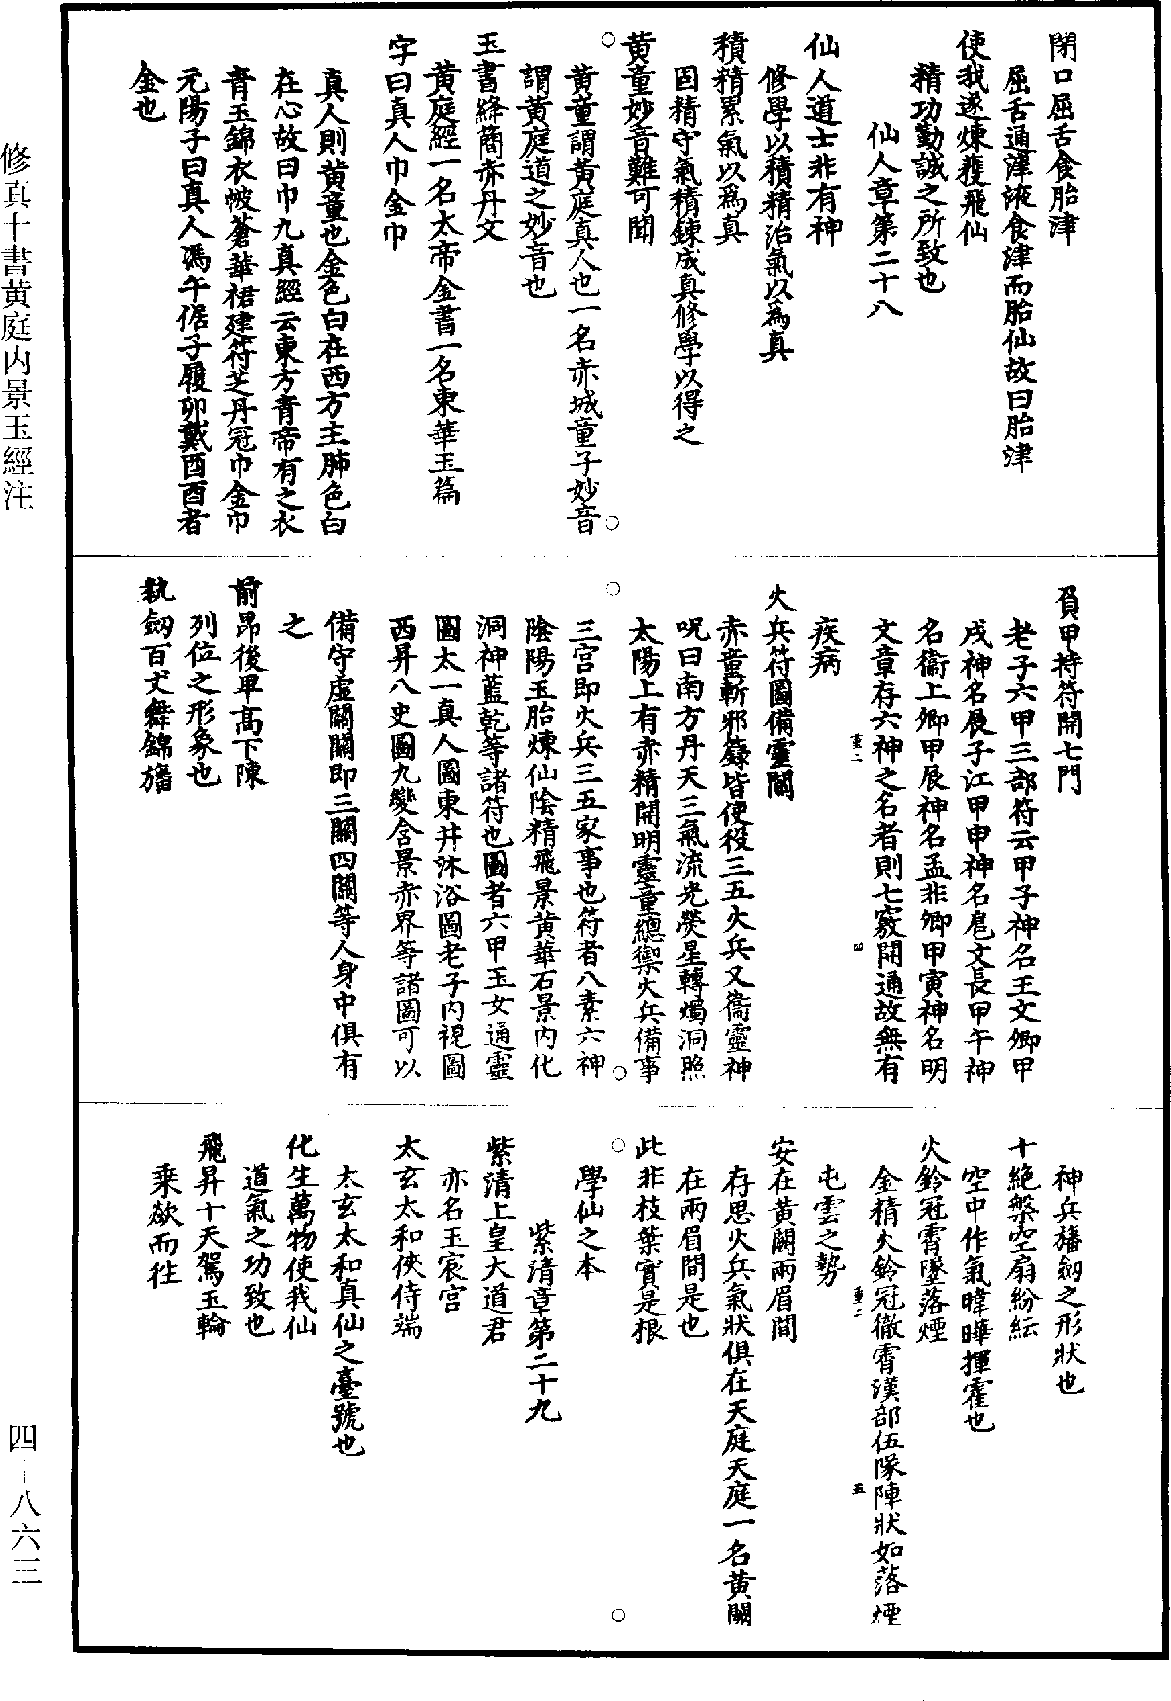 閉口屈舌食胎津
屈舌通津液食津而胎仙故曰胎津
使我遂煉獲飛仙
精功勤誠之所致也
仙人章第二十八
仙人道士非有神
修學以積精治氣以為真
積精累氣以為真
固精守氣精鍊成真修學以得之
黄童妙音難可聞
黄童謂黄庭真人也一名赤城童子妙音
謂黄庭道之妙音也
玉書絳簡赤丹文
黄庭經一名太帝金書一名東華玉篇
字曰真人巾金巾
真人則黄童也金色白在西方主肺色白
在心故曰巾九真經云東方青帝有之衣
青玉錦衣帔蒼華裙建符芝丹冠巾金巾
元陽子曰真人馮午倨子履卯戴酉酉者
金也
負甲持符開七門
老子六甲三部符云甲子神名王文卿甲
戌神名展子江甲申神名扈文長甲午神
名衞上卿甲辰神名孟非卿甲寅神名明
文章存六神之名者則七竅開通故無有
疾病
重二
四
火兵符圖備靈關
赤童斬邪籙皆使役三五火兵又衞靈神
呪曰南方丹天三氣流光熒星轉燭洞照
太陽上有赤精開明靈童總禦火兵備事
三宮即火兵三五家事也符者八素六神
陰陽玉胎煉仙陰精飛景黄華石景内化
洞神藍乾等諸符也圖者六甲玉女通靈
圖太一真人圖東井沐浴圖老子内視圖
西昇八史圖九變含景赤界等諸圖可以
備守虛關關即三關四關等人身中俱有
之
前昂後卑高下陳
列位之形象也
執劒百丈舞錦旛
神兵旛劒之形狀也
十絶槃空扇紛紜
空中作氣暐曄揮霍也
火鈴冠霄墜落煙
金精火鈴冠徹霄漢部伍隊陣狀如落煙
屯雲之勢
重二
五
安在黄闕兩眉間
存思火兵氣狀俱在天庭天庭一名黄闕
在兩眉間是也
此非枝葉實是根
學仙之本
紫清章第二十九
紫清上皇大道君
亦名玉宸宮
太玄太和俠侍端
太玄太和真仙之臺號也
化生萬物使我仙
道氣之功致也
飛昇十天駕玉輪
乘歘而往
修真十書黄庭内景玉經注
四-八六三